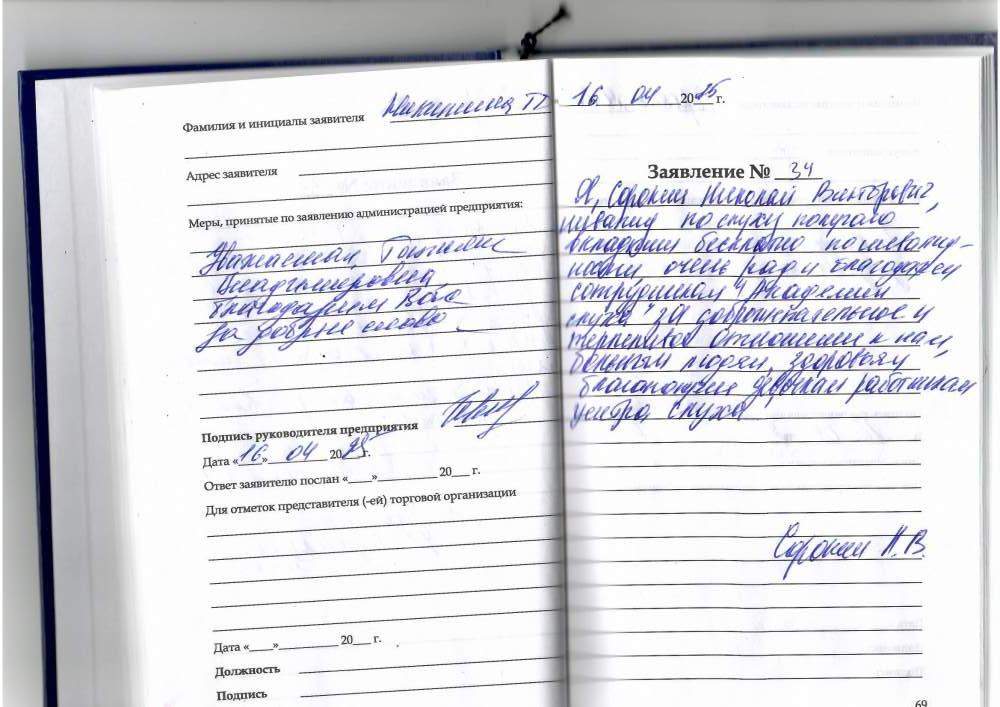 Фамилия и инициалы заявителя Никитина Т
Адрес заявителя
Меры, принятые по заявлению администрацией предприятия:
Уважаемый
Владимировна
благодарим Вас
за добрые слова.
Подпись руководителя предприятия
Дата «16» 04 2025 г.
Ответ заявителю послан «___»__________ 20___ г.
Для отметок представителя (-ей) торговой организации
Дата «___»__________ 20___ г.
Должность
Подпись
16 04 2025 г.
Заявление № 34
Я, Сорокин Николай Викторович,
инвалид по слуху получаю
вкладыши бесплатно
очень рад и благодарен
сотрудникам "Академии
слуха" за доброжелательное и
терпеливое отношение к нам,
больным людям, здоровья
благополучия девочкам работникам
центра слуха
Сорокин Н.В.
69